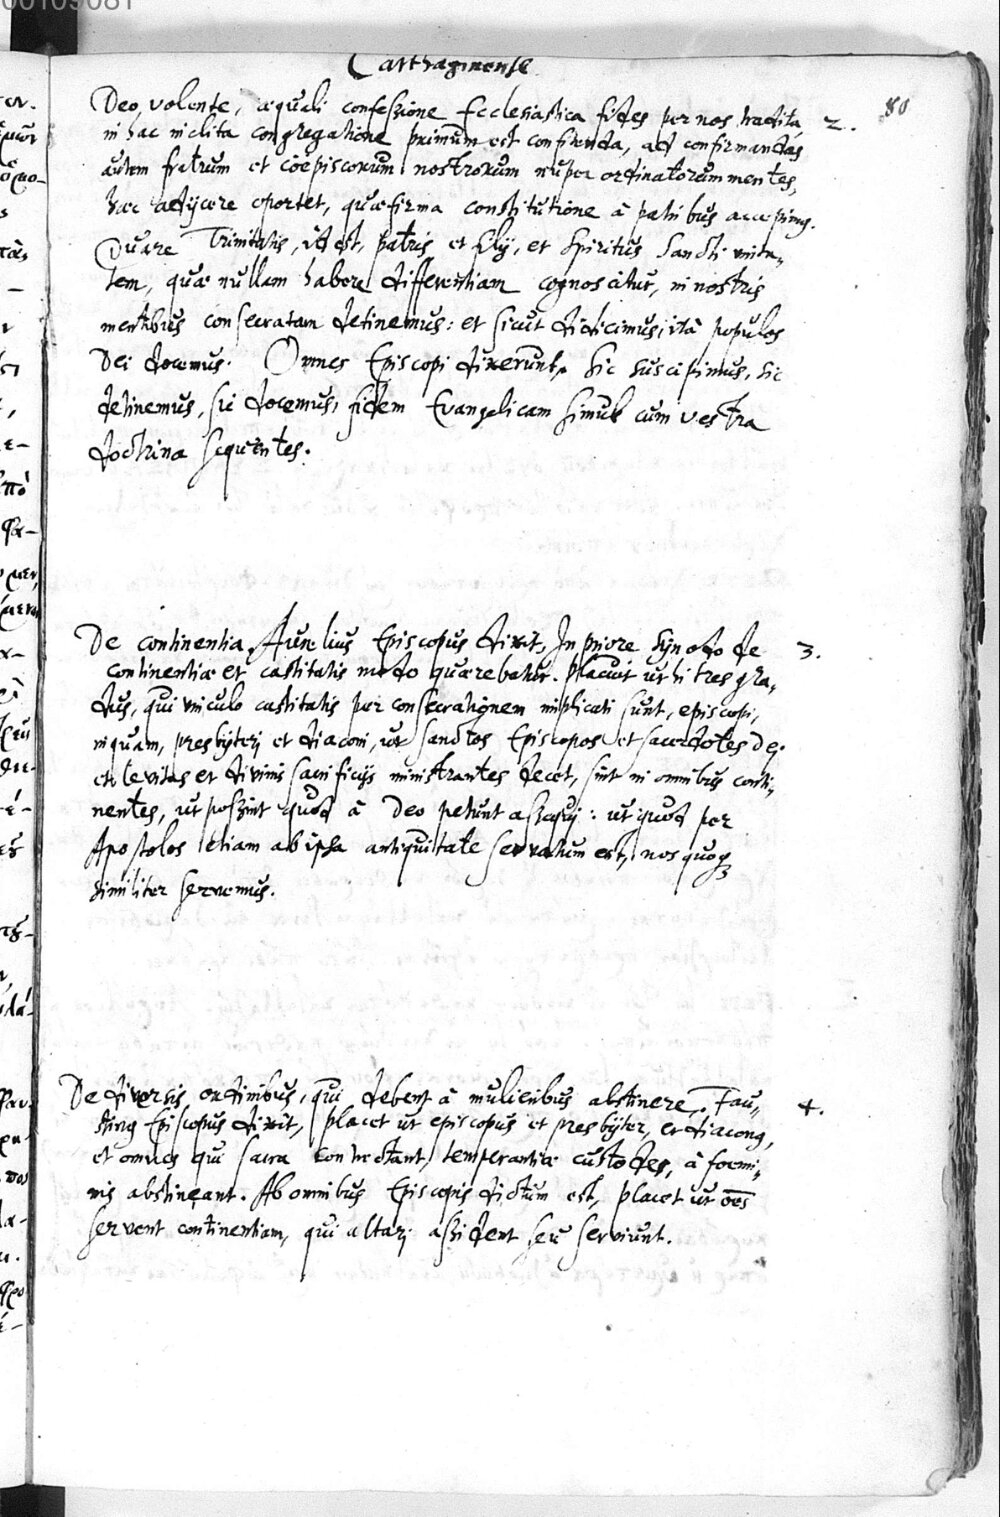 00109081
Carthaginense
80
Deo volente, æquali confessione Ecclesiastica fides per nos tradita 2.
in hac inclita congregatione primùm est confitenda, ad confirmandas
autem fratrum et coepiscoporum nostrorum nuper ordinatorum mentes,
hæc adijcere oportet, quæ firma constitutione à patribus accepimus.
Quare Trinitatis, id est, patris et filij, et Spiritus Sancti unita-
tem, quæ nullam habere differentiam cognoscitur, in nostris
mentibus consecratam detinemus: et sicut didicimus, ità populos
Dei docemus. Omnes Episcopi dixerunt, Sic suscipimus, sic
detinemus, sic docemus, fidem Evangelicam simul cum vestra
doctrina sequentes.
De continentia. Aurelius Episcopus dixit, In priore Synodo de 3.
continentiæ et castitatis modo quærebatur. Placuit ut hi tres gra-
dus, qui vinculo castitatis per consecrationem implicati sunt, episcopi,
inquam, presbyteri et diaconi, ut sanctos Episcopos et sacerdotes Dei
et levitas et divinis sacrificijs ministrantes decet, sint in omnibus conti-
nentes, ut possint quod à Deo petunt assequi: ut quod per
Apostolos etiam ab ipsa antiquitate servatum est, nos quoq3
similiter servemus.
De diversis ordinibus, qui debent à mulieribus abstinere. Fau- 4.
stinus Episcopus dixit, placet ut episcopus et presbyter, et diaconus,
et omnes qui sacra contrectant, temperantiæ custodes, à foemi-
nis abstineant. Ab omnibus Episcopis dictum est, placet ut oēs
servent continentiam, qui altari assident seu serviunt.